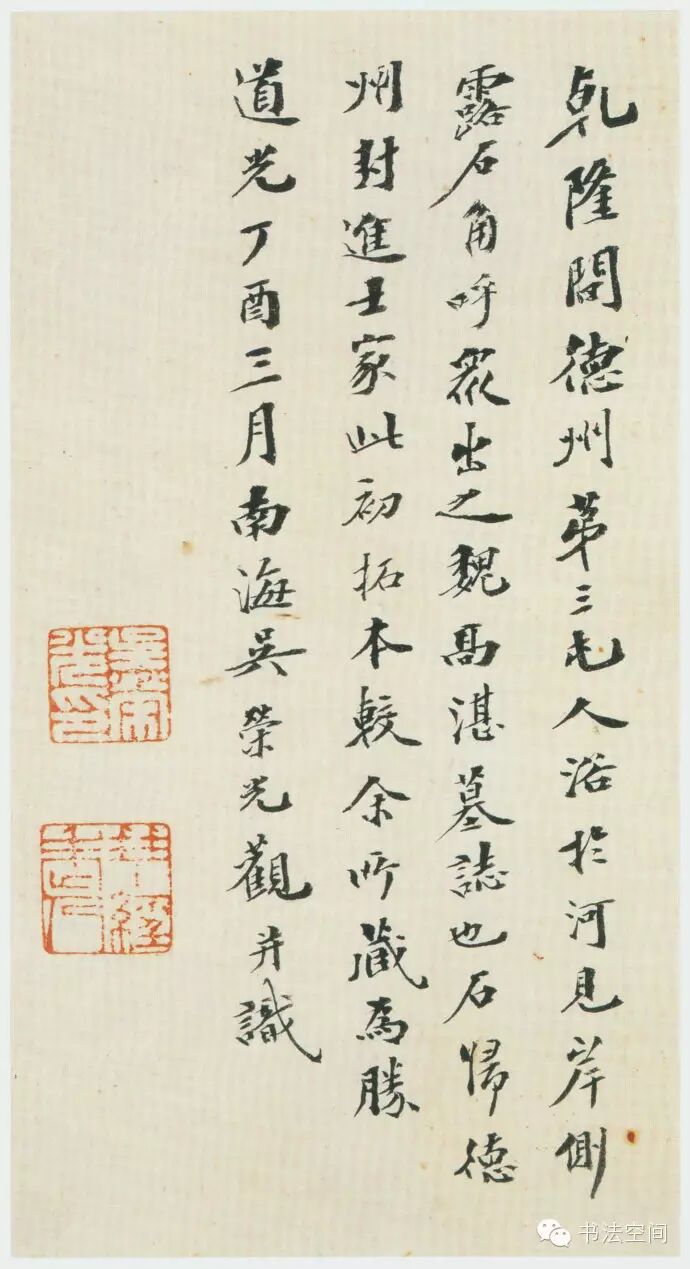 乹隆間德州第三屯人浴於河見岸側
露石角呼眾出之魏高湛墓誌也石歸德
州封進士家此初拓本較余所藏為勝
道光丁酉三月南海吳榮光觀并識
吳榮光印
书法空间